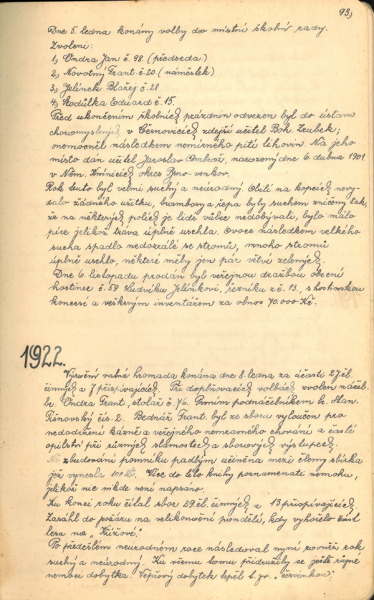 93,
Dne 5. ledna konány volby do místní školní rady.
Zvoleni:
1, Ondra Jan č. 98 (předseda)
2, Novotný Frant č. 20 (náměstek)
3, Jelínek Blažej č. 28
4, Kodílka Eduard č. 15.
Před ukončením školních prázdnin odvezen byl do ústavu
choromyslných v Černovicích zdejší učitel Boh. Zeubek,
onemocněl následkem nemírného pití lihovin. Na jeho
místo dán učitel Jaroslav Ambrož, narozený dne 6 dubna 1901
v Něm. okres Brno-venkov.
Rok tuto byl velmi suchý a neúrodný. Obilí na kopcích nevy-
salo žádného užitku, brambory a řepa byly suchem zničeny tak,
že na některých polích je lidé vůbec nedobývali, bylo málo
píce jelikož tráva úplně uschla. Ovoce následkem velkého
sucha spadlo nedozrálé se stromů, mnoho stromů
úplně uschlo, některé měly jen pár větví zelených.
Dne 6. listopadu prodán byl veřejnou dražbou obecní
hostinec č. 59 Ludvíku Jelínkovi, řezníku z č. 13, s hostinskou
koncesí a veškerým inventářem za obnos 70.000 Kč.
1922.
Výroční valná hromada konána dne 8. ledna za účasti 27 čl.
činných a 7 přispívajících. Při doplňovacích volbách zvolen náčel.
br. Ondra Frant, stolař č 76. Prvním podnáčelníkem b. Han.
Tišnovský čís 2. Bednář Frant. byl ze sboru vyloučen pro
nedodržení kázně a veřejného nemravného chování a časté
opilství při různých slavnostech a sborových výstupech.
Na zbudování pomníku padlým učiněna mezi členy sbírka
jež vynesla Kč. Více do této knihy poznamenati nemohu,
jelikož nic nikde není napsáno.
Ku konci roku čítal sbor 29 čl. činných a 18 přispívajících.
Zasáhl do požáru na velikonoční pondělí, kdy vyhořelo část
lesa na
Po předešlém neúrodném roce následoval nyní rovněž rok
suchý a neúrodný. Ku všemu tomu přidružily se ještě různé
nemoci dobytka. Vepřový dobytek trpěl t. zv. „červenkou"